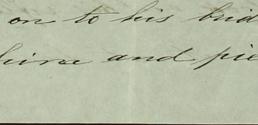 on to his brid
hire and pie